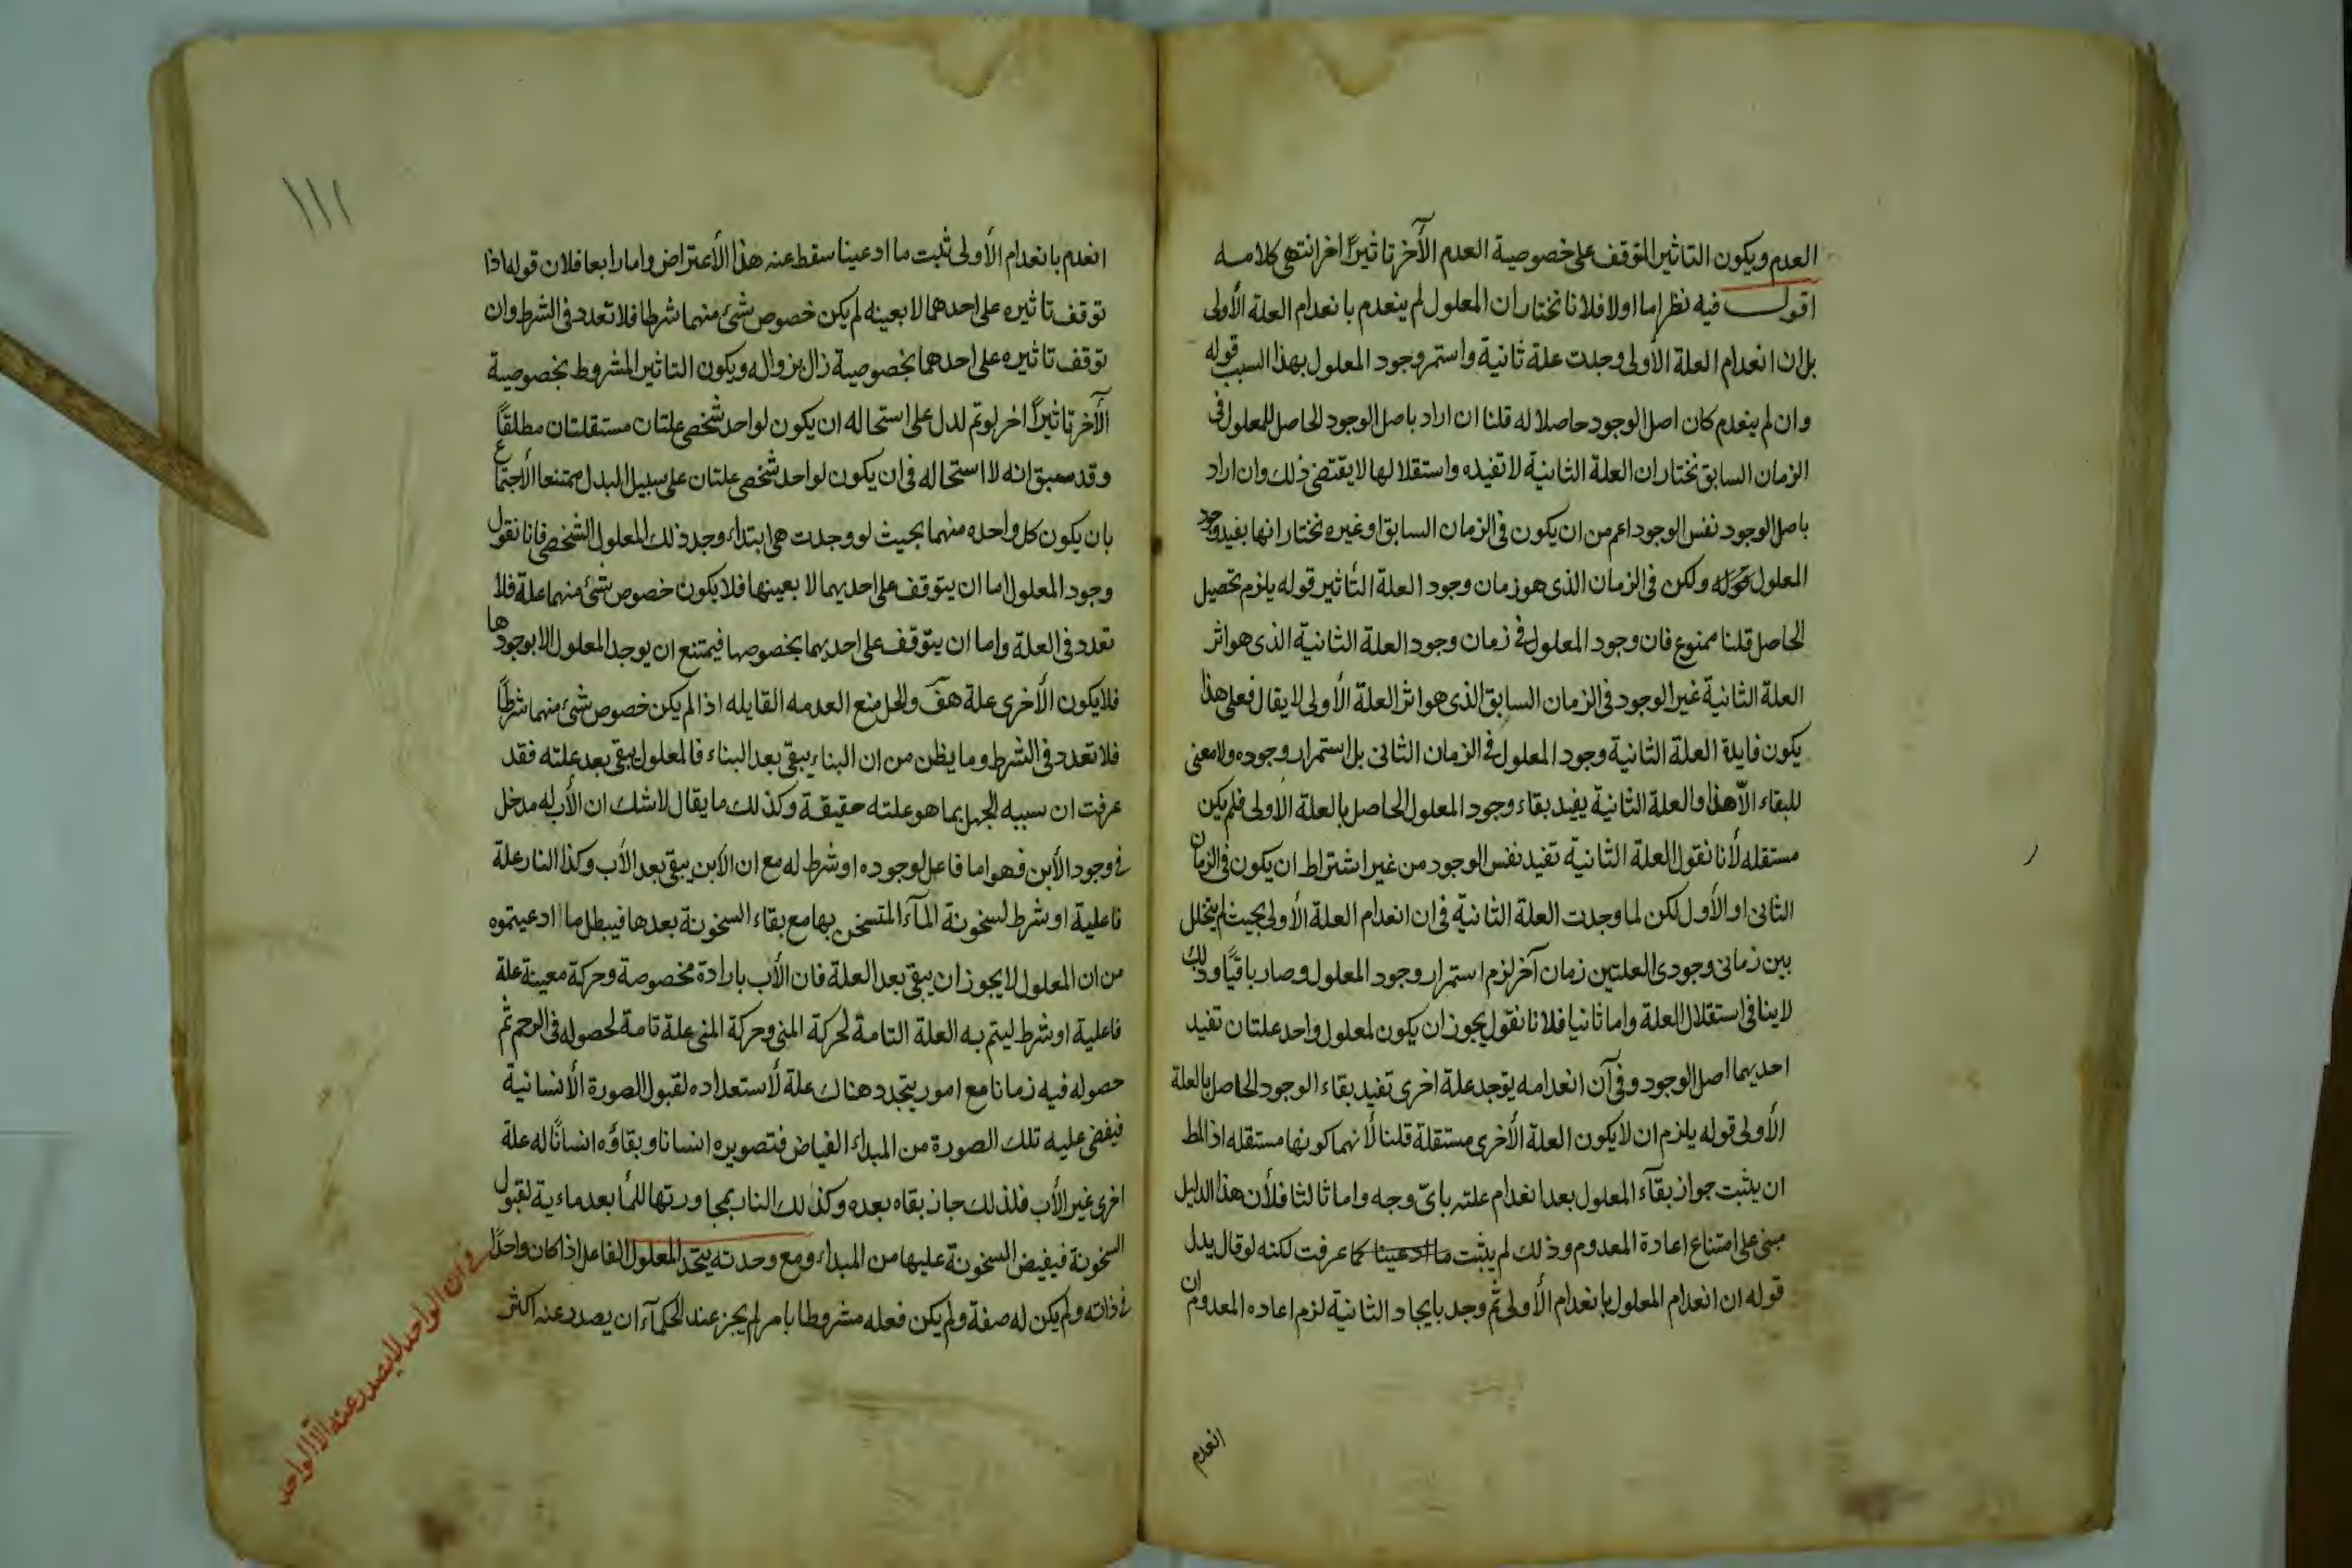 العدم ويكون التاثير المتوقف على خصوصية العدم الآخر تاثيرًا اخر انتهى كلامه
اقول فيه نظر اما اولا فلانا نختار ان المعلول لم ينعدم بانعدام العلة الأولى
بل ان انعدام العلة الأولى وجدت علة ثانية واستمر وجود المعلول بهذا السبب قوله
وان لم ينعدم كان اصل الوجود حاصلا له قلنا ان اراد باصل الوجود الحاصل للمعلول فى
الزمان السابق نختار ان العلة الثانية لا تفيده واستقلالها لا يقتضى ذلك وان اراد
باصل الوجود نفس الوجود اعم من ان يكون فى الزمان السابق او غيره نختار انها يفيد وجود
المعلول ولكن فى الزمان الذى هو زمان وجود العلة التأثير قوله يلزم تحصيل
الحاصل قلنا ممنوع فان وجود المعلول فى زمان وجود العلة الثانية الذى هو اثر
العلة الثانية غير الوجود فى الزمان السابق الذى هو اثر العلة الأولى لا يقال فعلى هذا
يكون فايدة العلة الثانية وجود المعلول فى الزمان الثانى بل استمرار وجوده ولا معنى
للبقاء الّا هذا والعلة الثانية يفيد بقاء وجود المعلول الحاصل بالعلة الأولى فلم يكن
مستقله لأنا نقول العلة الثانية تفيد نفس الوجود من غير اشتراط ان يكون فى الزمان
الثانى او الأول لكن لما وجدت العلة الثانية فى ان انعدام العلة الأولى بحيث لم يتخلل
بين زمانى وجودى العلتين زمان آخر لزم استمرار وجود المعلول وصار باقيًا وذلك
لا ينافى استقلال العلة واما ثانيا فلانا نقول يجوز ان يكون لمعلول واحد علتان تفيد
احديهما اصل الوجود وفى آن انعدامه يوجد علة اخرى تفيد بقاء الوجود الحاصل بالعلة
الأولى قوله يلزم ان لا يكون العلة الأخرى مستقلة قلنا لأنهما كونها مستقله اذ المط
ان يثبت جواز بقآء المعلول بعد انعدام علته باىّ وجه واما ثالثا فلأن هذا الدليل
مبنى على امتناع اعادة المعدوم وذلك لم يثبت ما ادعينا كما عرفت لكنه لو قال بدل
قوله ان انعدام المعلول بانعدام الأولى ثم وجد بايجاد الثانية لزم اعاده المعدوم ان
انعدم
١١١
انعدم بانعدام الأولى ثبت ما ادعينا سقط عنه هذا الأعتراض واما رابعا فلان قوله اذا
توقف تاثيره على احدهما لا بعينه لم يكن خصوص شئ منهما شرطا فلا تعدد فى الشرط وان
توقف تاثيره على احدهما بخصوصية زال بزواله ويكون التاثير المشروط بخصوصية
الآخر تاثيرًا اخر لو تم لدل على استحاله ان يكون لواحد شخصى علتان مستقلتان مطلقًا
وقد سبق انه لا استحاله فى ان يكون لواحد شخصى علتان على سبيل البدل ممتنعا الأجتماع
بان يكون كل واحده منهما بحيث لو وجدت هى ابتداء وجد ذلك المعلول الشخصى فانا نقول
وجود المعلول اما ان يتوقف على احديهما لا بعينها فلا يكون خصوص شئ منهما علة فلا
تعدد فى العلة واما ان يتوقف على احديهما بخصوصها فيمتنع ان يوجد المعلول الا بوجودها
فلا يكون الأخرى علة هف والحل منع العدمه القايله اذا لم يكن خصوص شئ منهما شرطًا
فلا تعدد فى الشرط وما يظن من ان البناء يبقى بعد البناء فالمعلول يبقى بعد علته فقد
عرفت ان سببه الجهل بما هو علته حقيقة وكذلك ما يقال لا شك ان الأب له مدخل
فى وجود الأبن فهو اما فاعل لوجوده او شرط له مع ان الابن يبقى بعد الأب وكذا النار علة
فاعلية او شرط لسخونة المآء المتسخن بها مع بقاء السخونة بعدها فيبطل ما ادعيتموه
من ان المعلول لا يجوز ان يبقى بعد العلة فان الأب بارادة مخصوصة وحركة معينة علة
فاعلية او شرط ليتم به العلة التامة لحركة المنى وحركة المنى علة تامة لحصوله فى الرحم ثم
حصوله فيه زمانا مع امور يتجدد هناك علة لأستعداده لقبول الصورة الأنسانية
فيفضى عليه تلك الصورة من المبداء الفياض فتصويره انسانا وبقاؤه انسانًا له علة
اخرى غير الأب فلذلك جاز بقاه بعده وكذلك النار بمجاورتها للمأ بعد ماءية لقبول
السخونة فيفيض السخونة عليها من المبداء ومع وحدته يتحد المعلول الفاعل اذا كان واحدًا
فى ذاته ولم يكن له صفة ولم يكن فعله مشروطا بامر لم يجز عند الحكمآء ان يصدر عنه اكثر
فى ان الواحد لا يصدر عنه الّا الواحد